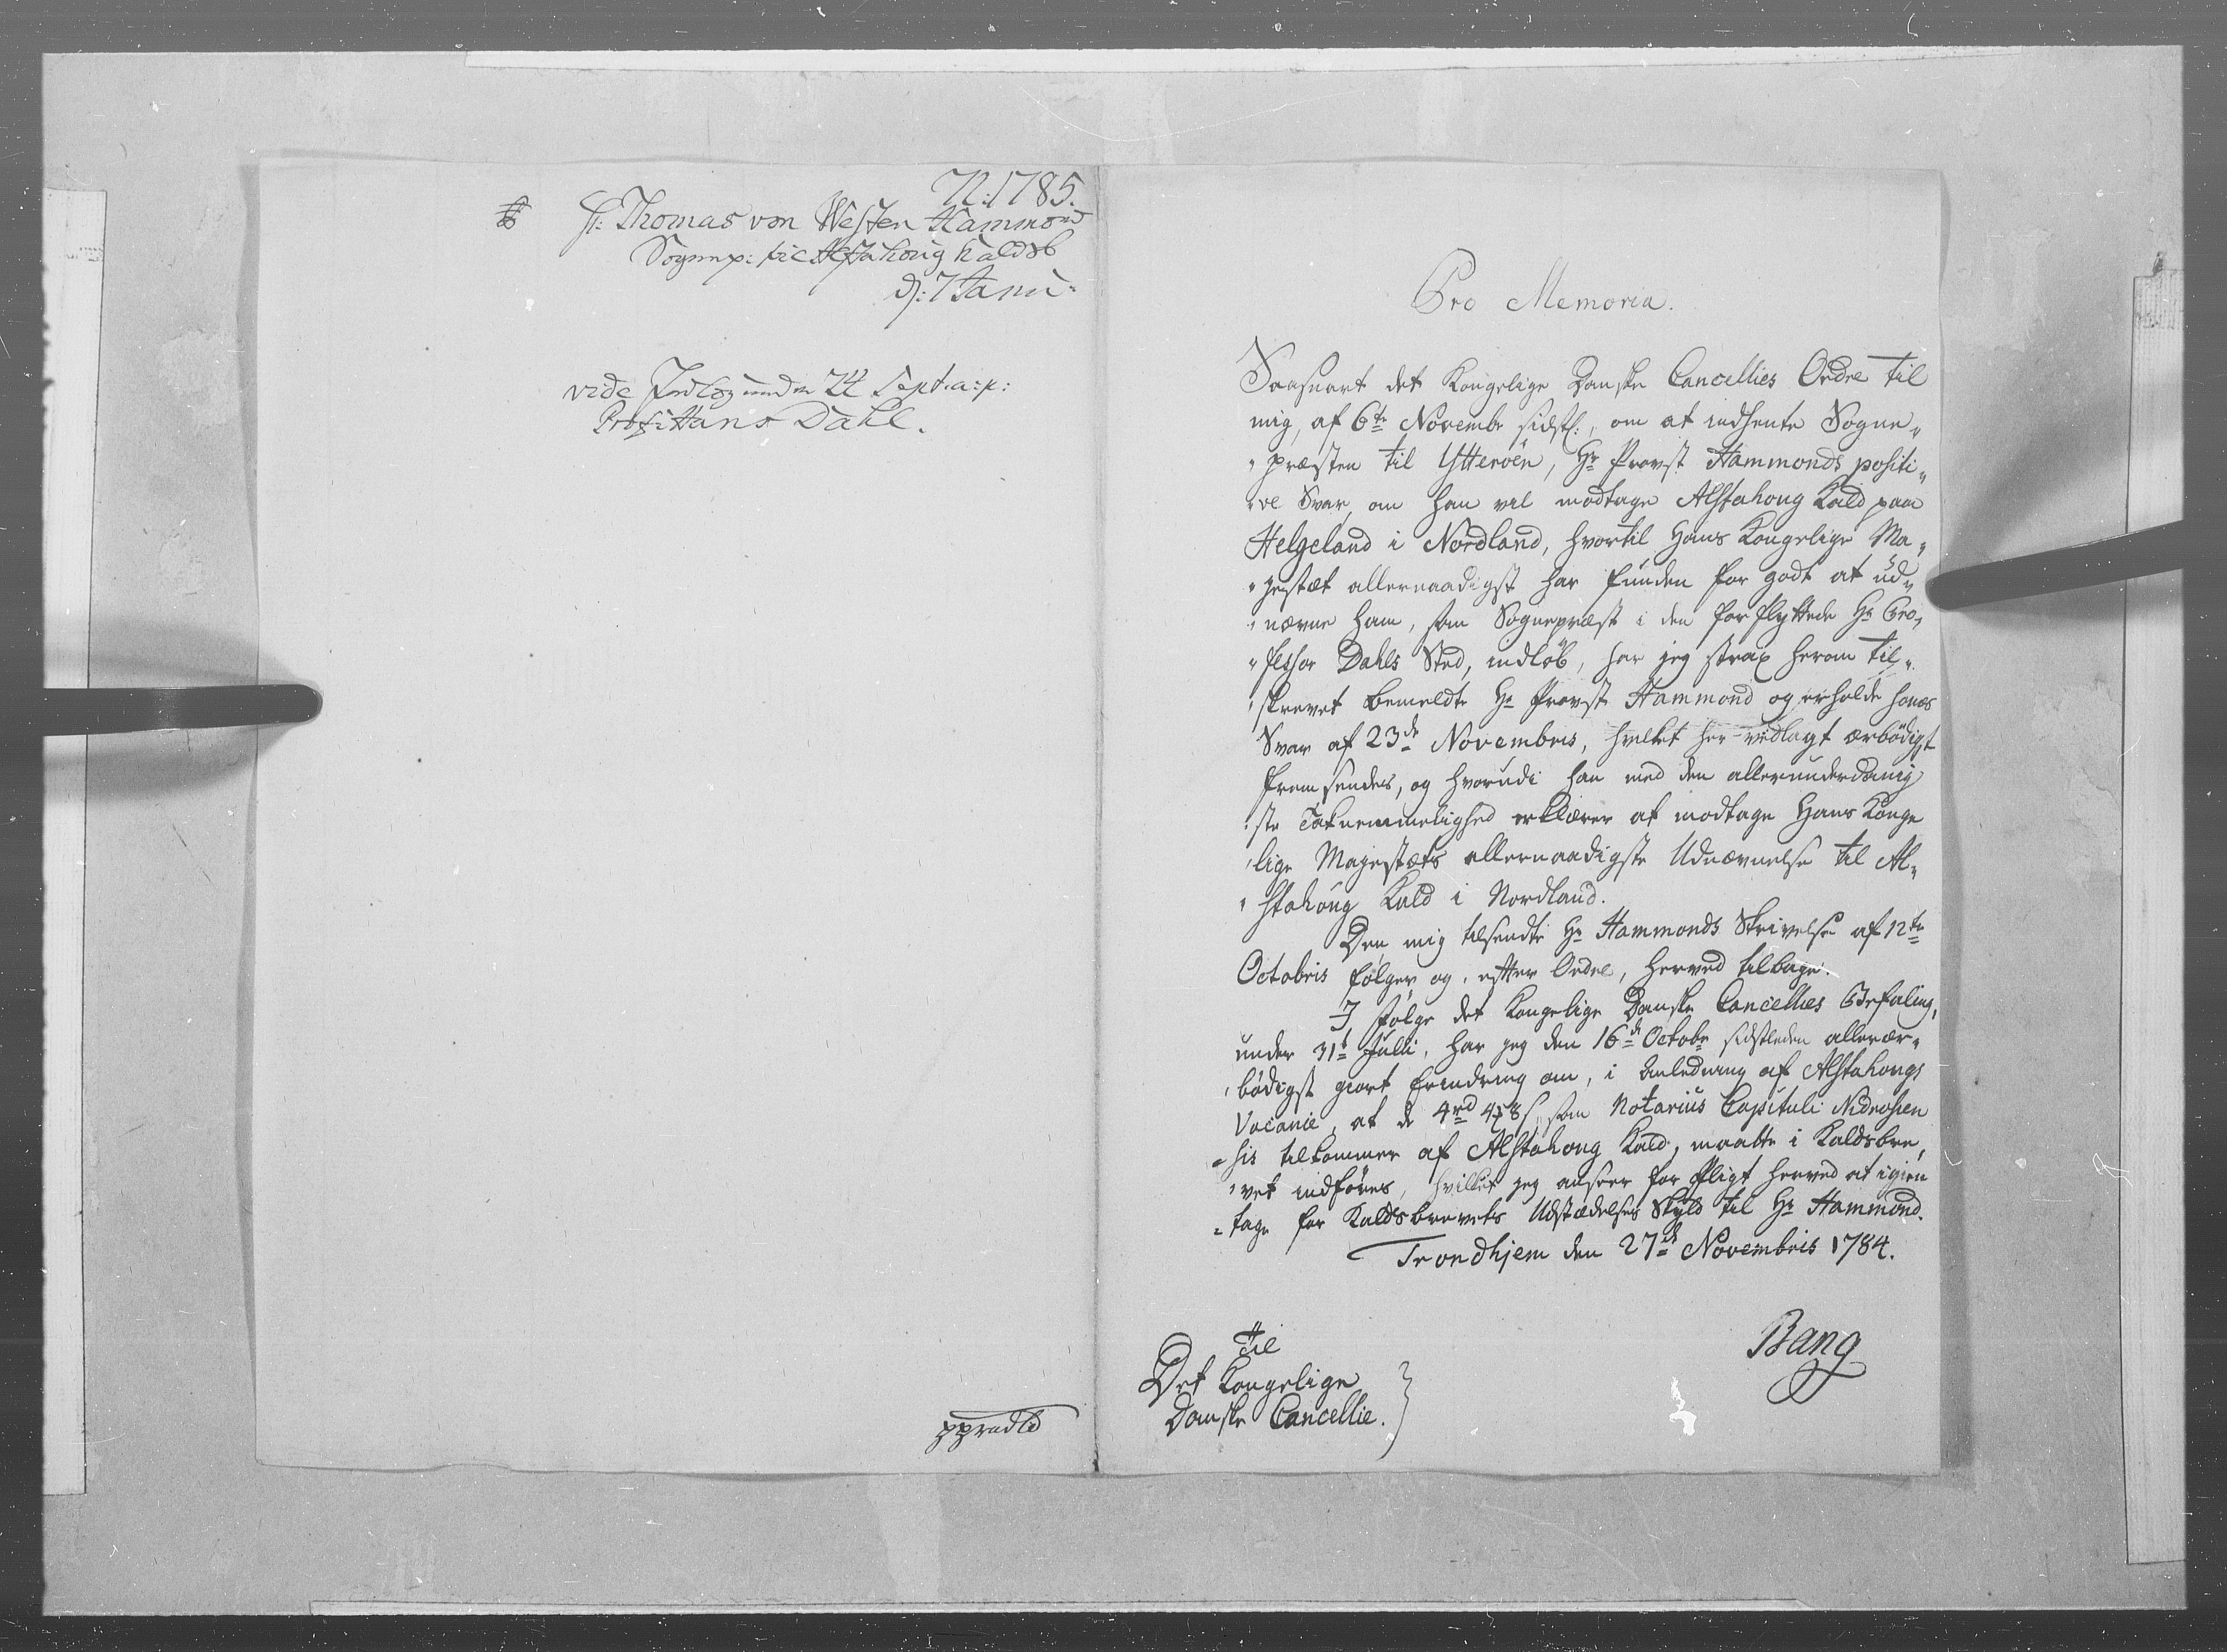 N: 1785.
Hr: Thomas von Westen Hammond
Sognep: til Alstahoug Kaldsb
d: 7 Janu:
vide Indlæg under 24 Sept: a: p:
Prof: Hans Dahl.
Pro Memoria.
Saasnart det Kongelige Danske Cancellies Ordre til
mig, af 6te Novembr sidstl:, om at indhente Sogne„
„præsten til Ytterøen, Hr Provst Hammonds positi„
„ve Svar, om han vil modtage Alstahoug Kald paa
Helgeland i Nordland, hvortil Hans Kongelige Ma„
„jestæt allernaadigst har funden for godt at ud„
„nævne ham, som Sognepræst i den forflyttede Hr Pro„
„fessor Dahls Sted, indløb, har jeg strax herom til„
„skrevet bemeldte Hr Provst Hammond og erholdt hans
Svar af 23de Novembris, hvilket her vedlagt ærbödigst
fremsendes, og hvorudi han med den allerunderdanig
„ste Taknemmelighed erklærer at modtage Hans Konge
„lige Majestæts allernaadigste Udnævnelse til Al„
„stahoug Kald i Nordland.
Den mig tilsendte Hr Hammonds Skrivelse af 12te
Octobris følger og, efter Ordre, herved tilbage.
I følge det Kongelige Danske Cancellies Befaling,
under 31te Julii, har jeg den 16de Octobr sidstleden allerær„
„bödigst giort Erindring om, i Anledning af Alstahougs
Vacance, at de 4rd 4 8s, som Notarius Capituli Nidrosien
„sis tilkommer af Alstahoug Kald, maatte i Kaldsbre„
„vet indføres, hvilket jeg anseer for Pligt herved at igien
„tage for Kaldsbrevets Udstædelses Skyld til Hr Hammond.
Trondhjem den 27de Novembris 1784.
Bang
Til
Det Kongelige
Danske Cancellie.